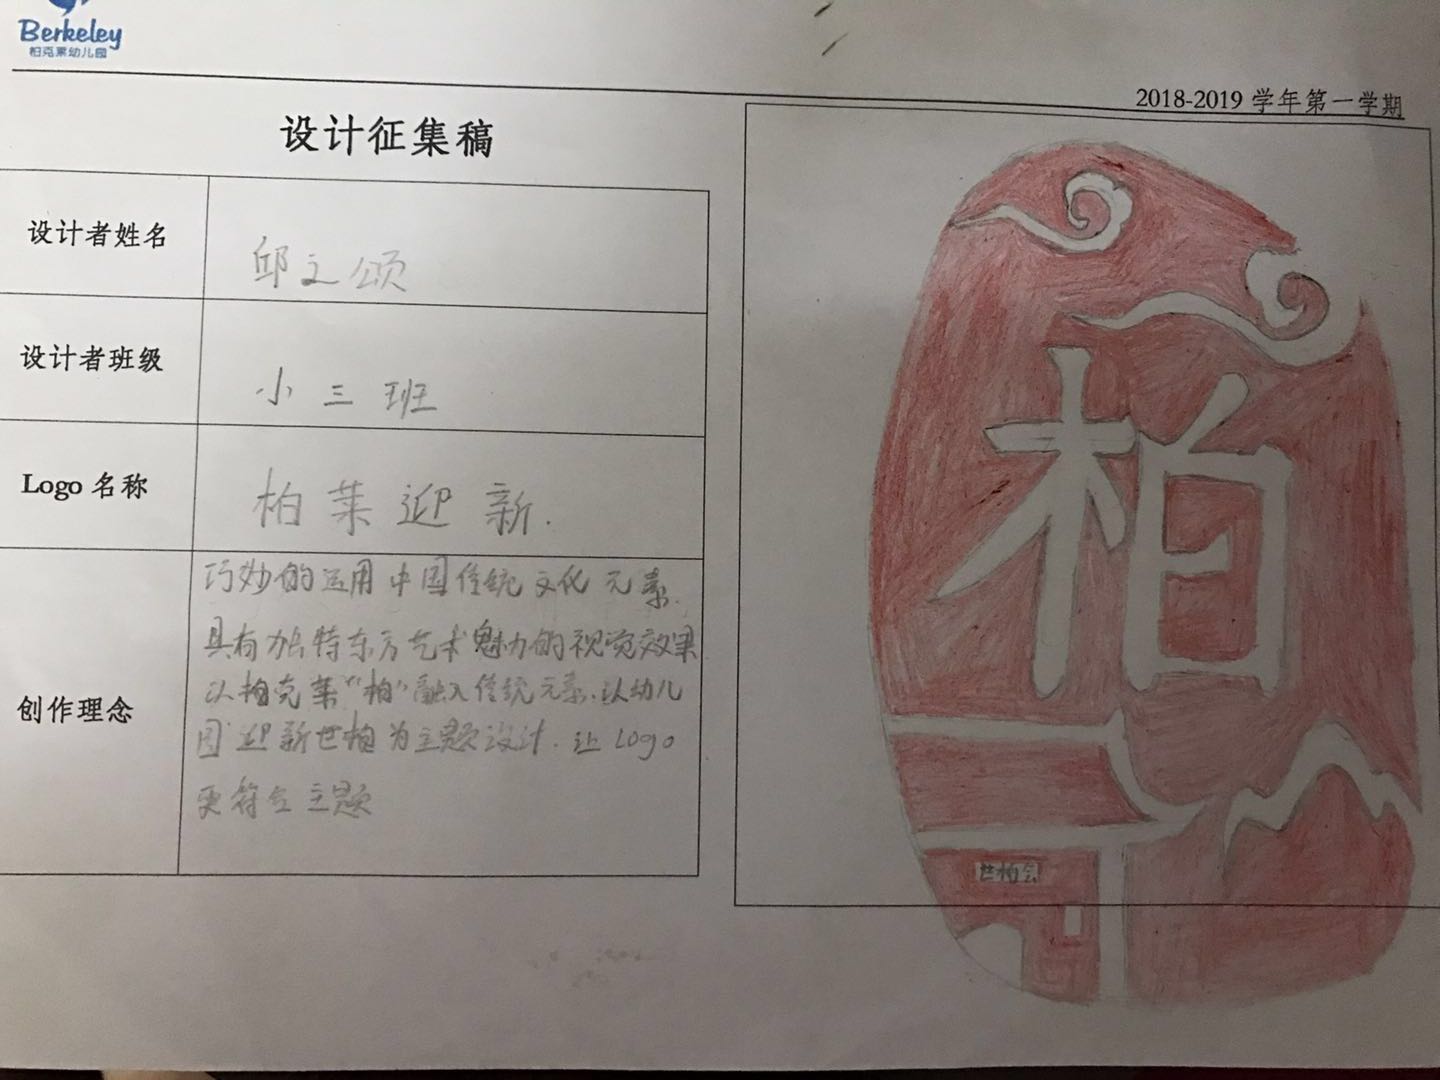 Berkeley
柏克莱幼儿园
2018-2019 学年第一学期
设计征集稿
设计者姓名
邱文颂
设计者班级
小三班
Logo 名称
柏莱迎新.
创作理念
巧妙的运用中国传统文化元素.
具有独特东方艺术魅力的视觉效果
以柏克莱“柏”融入传统元素.以幼儿
园迎新世柏为主题设计.让Logo
更符合主题
柏
世柏会